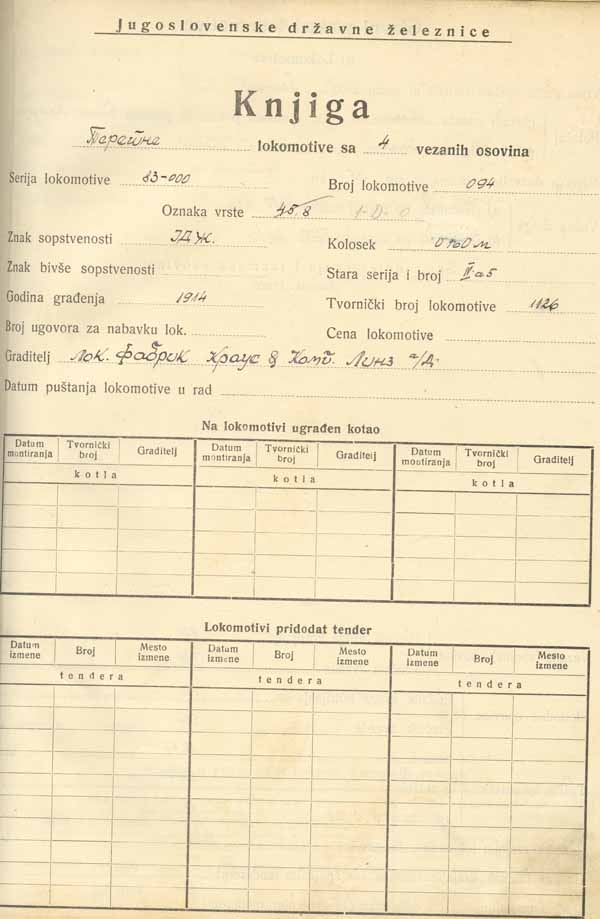 Jugoslovenske državne železnice
Knjiga
Теретне lokomotive sa 4 vezanih osovina
Serija lokomotive 83-000 Broj lokomotive 094
Oznaka vrste 45.8 1-D-0
Znak sopstvenosti ЈДЖ. Kolosek 0'760 м
Znak bivše sopstvenosti Stara serija i broj
Godina građenja 1914 Tvornički broj lokomotive 1126
Broj ugovora za nabavku lok. Cena lokomotive
Graditelj Лок. Фабрик Краус & Комп. Линз а/Д.
Datum puštanja lokomotive u rad
Na lokomotivi ugrađen kotao
Datum montiranja Tvornički broj Graditelj Datum montiranja Tvornički broj Graditelj Datum montiranja Tvornički broj Graditelj
kotla kotla kotla
Lokomotivi pridodat tender
Datum izmene Broj Mesto izmene Datum izmene Broj Mesto izmene Datum izmene Broj Mesto izmene
tendera tendera tendera